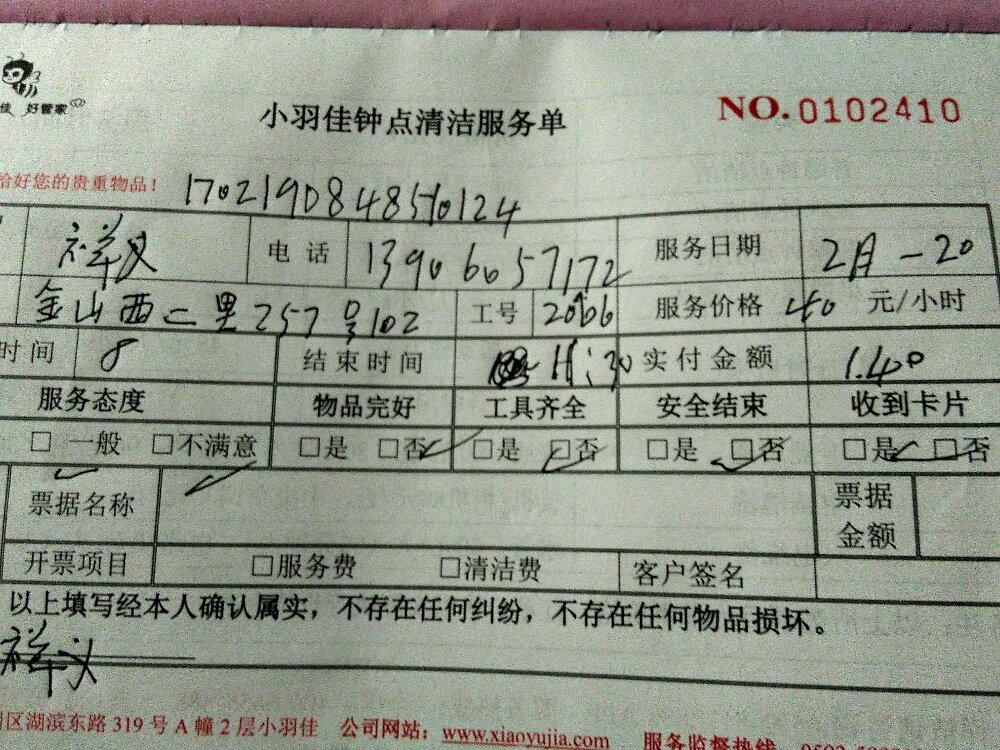 佳 好管家
小羽佳钟点清洁服务单 NO.0102410
给好您的贵重物品!
祥义 电话 13906057172 服务日期 2月-20
金山西二里257号102 工号 2066 服务价格 40 元/小时
时间 8 结束时间 11:30 实付金额 140
服务态度 物品完好 工具齐全 安全结束 收到卡片
□ 一般 □不满意 □是 □否 □是 □否 □是 □否 □是 □否
票据名称 票据金额
开票项目 □服务费 □清洁费 客户签名
以上填写经本人确认属实，不存在任何纠纷，不存在任何物品损坏。
祥义
区湖滨东路 319 号 A 幢 2 层小羽佳 公司网站：www.xiaoyujia.com 服务监督热线